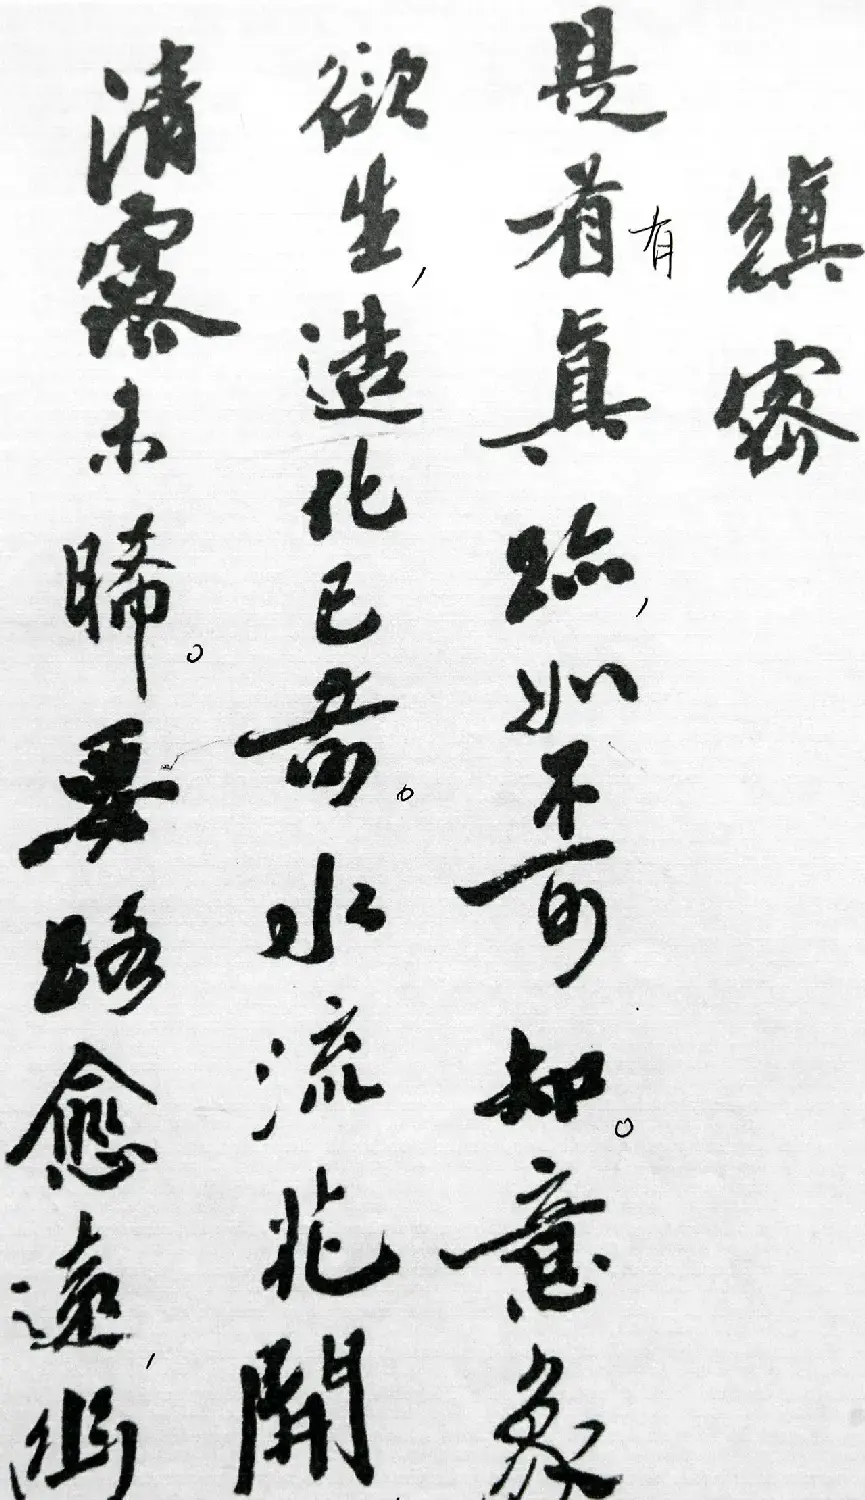 縝密
是有真跡，如不可知。意象
有
欲生，造化已奇。水流花開，
清露未晞。要路愈遠，幽